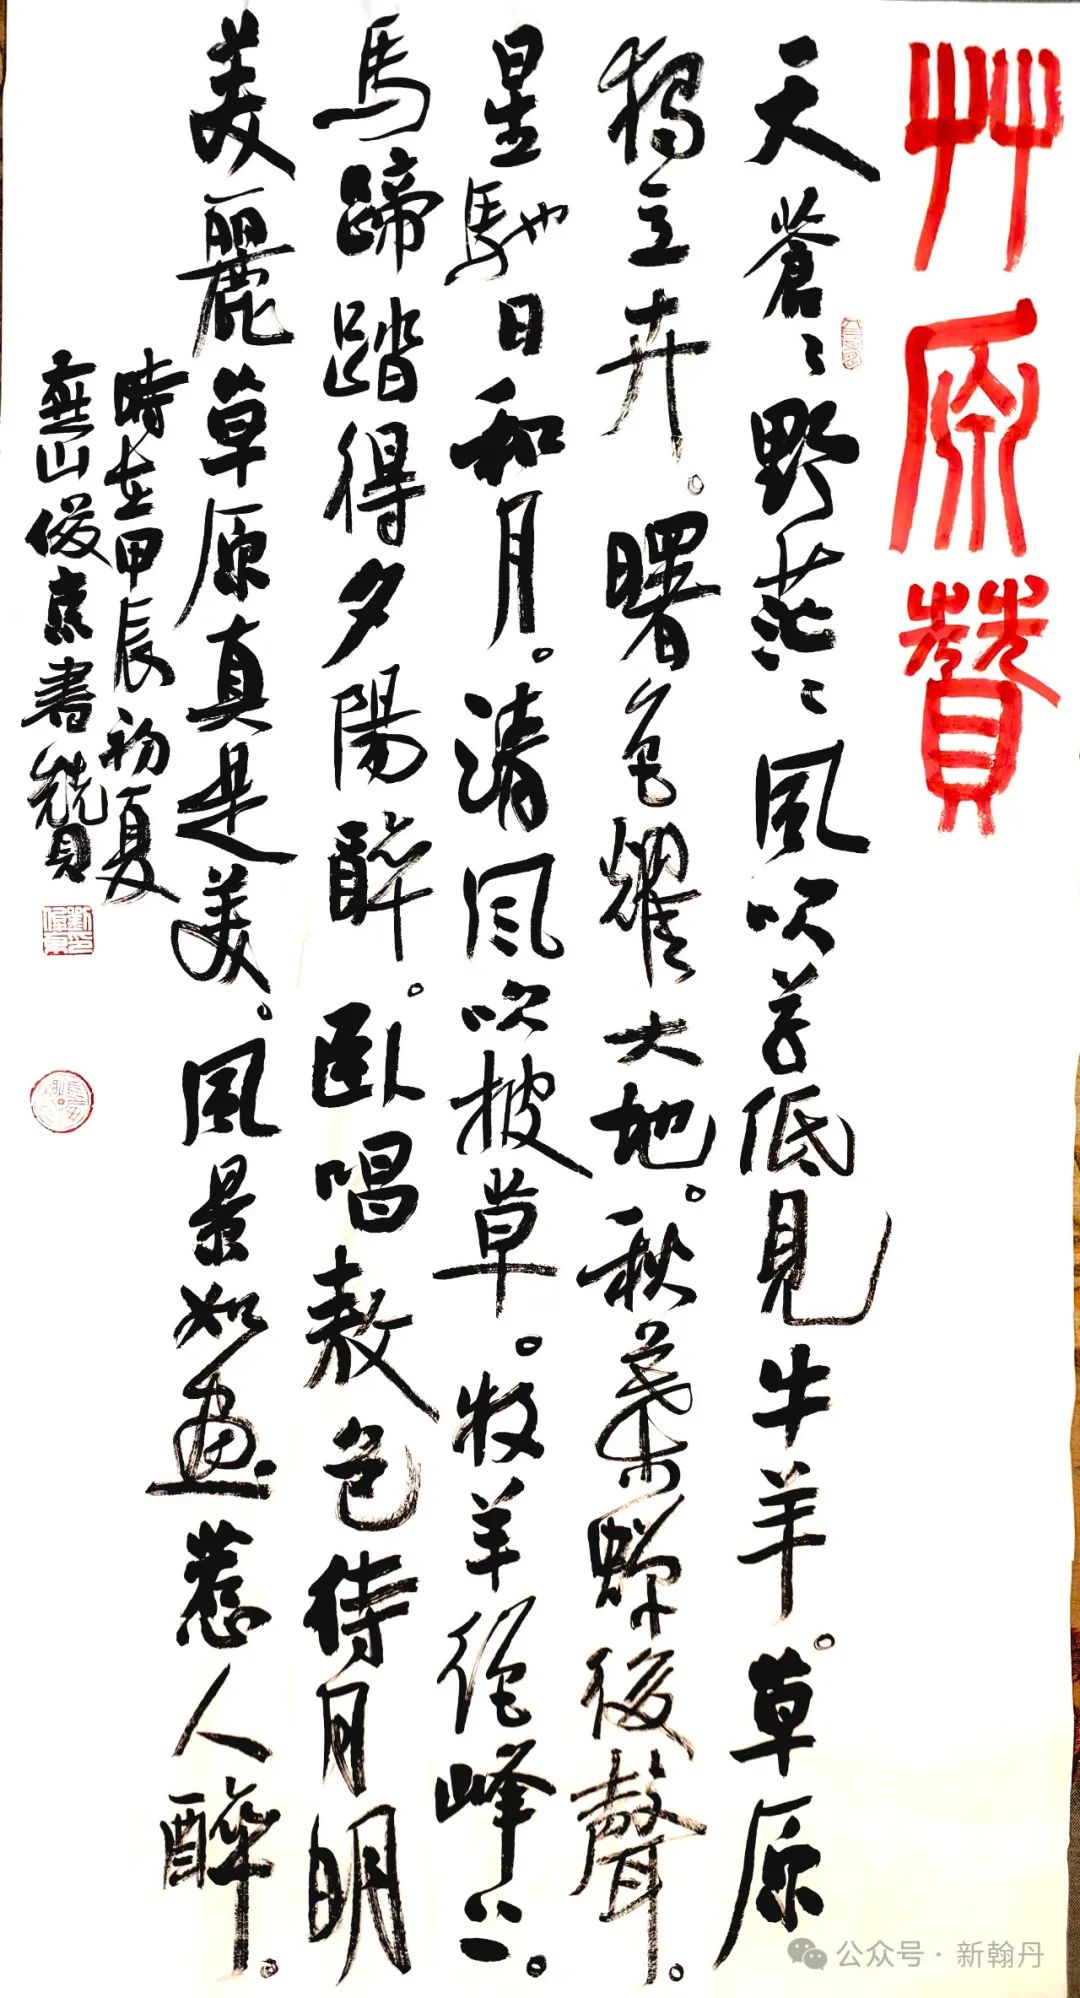 艸原贊
天蒼〻野茫〻風吹草低見牛羊。草原
獨立卉。曙色耀大地。秋葉蟬後聲。
星馳日和月。清風吹披草。牧羊絕峰上。
馬蹄踏得夕陽醉。臥唱敖包待月明
美麗草原真是美。風景如畫惹人醉。
時在甲辰初夏
燕山俊京書贊
公众号·新翰丹